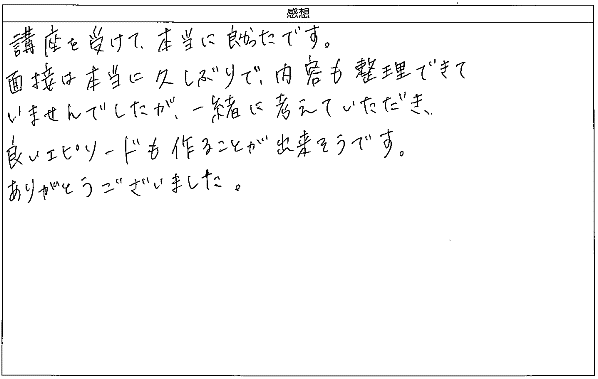 感想
講座を受けて、本当に良かったです。
面接は本当に久しぶりで、内容も整理できて
いませんでしたが、一緒に考えていただき、
良いエピソードも作ることが出来そうです。
ありがとうございました。